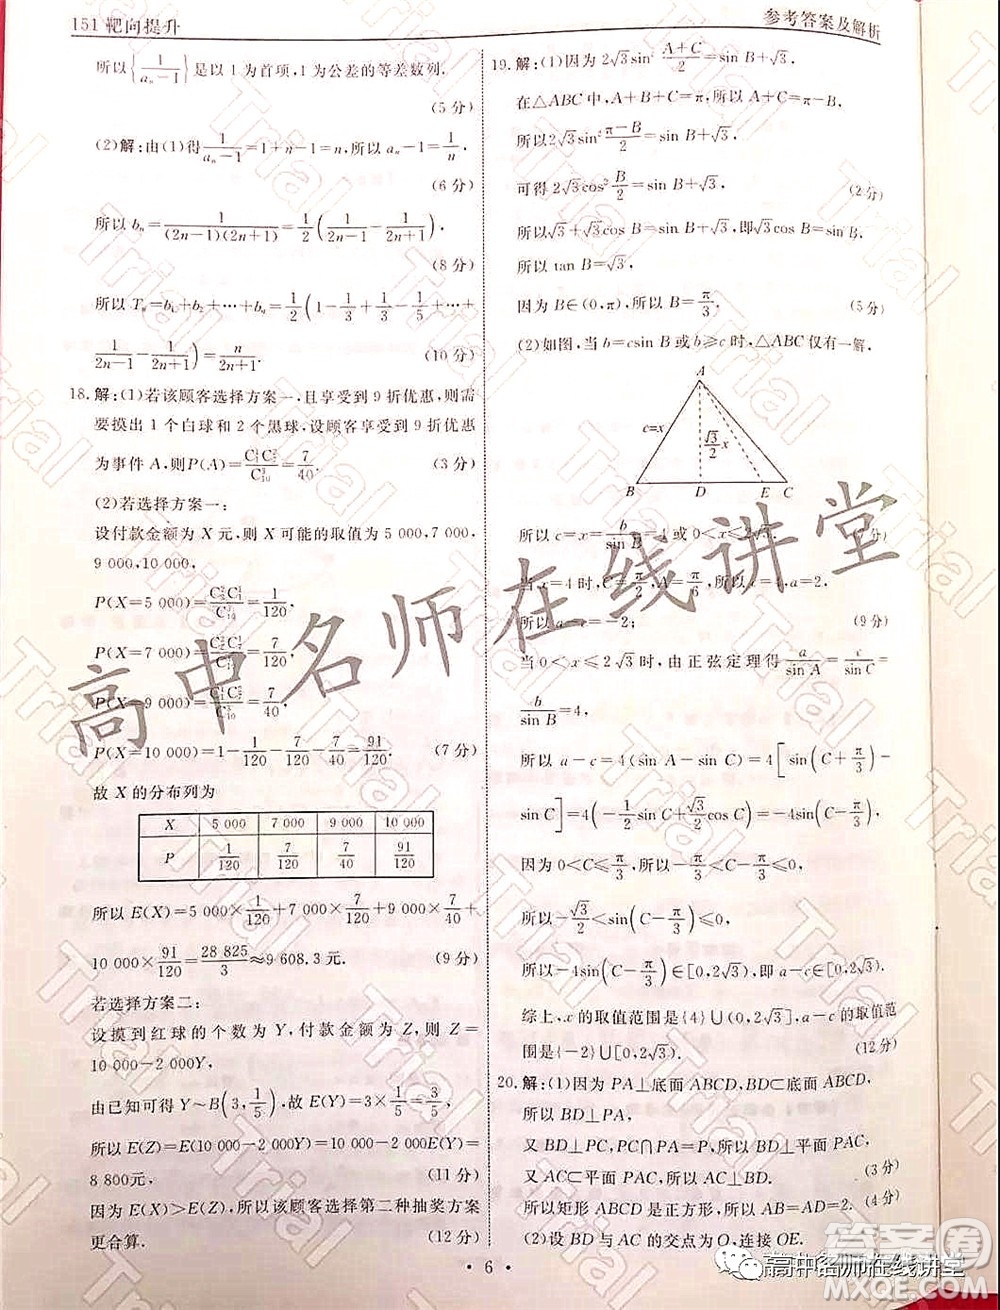 151 靶向提升
参考答案及解析
所以{1/(aₙ-1)}是以1为首项,1为公差的等差数列.
(5分)
(2)解:由(1)得1/(aₙ-1)=1+n-1=n,所以aₙ-1=1/n.
(6分)
所以bₙ=1/((2n-1)(2n+1))=1/2(1/(2n-1)-1/(2n+1)).
(8分)
所以Tₙ=b₁+b₂+…+bₙ=1/2(1-1/3+1/3-1/5+…+
1/(2n-1)-1/(2n+1))=n/(2n+1).
(10分)
18.解:(1)若该顾客选择方案一,且享受到9折优惠,则需
要摸出1个白球和2个黑球,设顾客享受到9折优惠
为事件A,则P(A)=C₃¹C₇²/C₁₀³=7/40. (3分)
(2)若选择方案一:
设付款金额为X元,则X可能的取值为5 000,7 000,
9 000,10 000,
P(X=5 000)==1/120,
P(X=7 000)==7/120,
P(X=9 000)==7/40,
P(X=10 000)=1-1/120-7/120-7/40=91/120. (7分)
故X的分布列为
X 5 000 7 000 9 000 10 000
P 1/120 7/120 7/40 91/120
所以E(X)=5 000×1/120+7 000×7/120+9 000×7/40+
10 000×91/120=28 825/3≈9 608.3元. (9分)
若选择方案二:
设摸到红球的个数为Y,付款金额为Z,则Z=
10 000-2 000Y,
由已知可得Y~B(3,1/5),故E(Y)=3×1/5=3/5,
所以E(Z)=E(10 000-2 000Y)=10 000-2 000E(Y)=
8 800元. (11分)
因为E(X)>E(Z),所以该顾客选择第二种抽奖方案
更合算. (12分)
19.解:(1)因为2√3sin²(A+C)/2=sin B+√3,
在△ABC中,A+B+C=π,所以A+C=π-B,
所以2√3sin²(π-B)/2=sin B+√3,
可得2√3cos²B/2=sin B+√3, (2分)
所以√3+√3cos B=sin B+√3,即√3cos B=sin B.
所以tan B=√3,
因为B∈(0,π),所以B=π/3. (5分)
(2)如图,当b=csin B或b≥c时,△ABC仅有一解.
A
c=x
√3/2x
B D E C
所以c=x=b/sin B=4或0<x≤2√3.
当c=4时,C=π/2,A=π/6,所以c=4,a=2,
所以a-c=-2; (9分)
当0<x≤2√3时,由正弦定理得a/sin A=c/sin C=
b/sin B=4,
所以a-c=4(sin A-sin C)=4[sin(C+π/3)-
sin C]=4(-1/2sin C+√3/2cos C)=-4sin(C-π/3),
因为0<C≤π/3,所以-π/3<C-π/3≤0,
所以-√3/2<sin(C-π/3)≤0,
所以-4sin(C-π/3)∈[0,2√3),即a-c∈[0,2√3).
综上,x的取值范围是{4}∪(0,2√3],a-c的取值范
围是{-2}∪[0,2√3). (12分)
20.解:(1)因为PA⊥底面ABCD,BD⊂底面ABCD,
所以BD⊥PA,
又BD⊥PC,PC∩PA=P,所以BD⊥平面PAC,
又AC⊂平面PAC,所以BD⊥AC. (3分)
所以矩形ABCD是正方形,所以AB=AD=2. (4分)
(2)设BD与AC的交点为O,连接OE.
• 6 •
高中名师在线讲堂
高中名师在线讲堂
答案圈
Trial